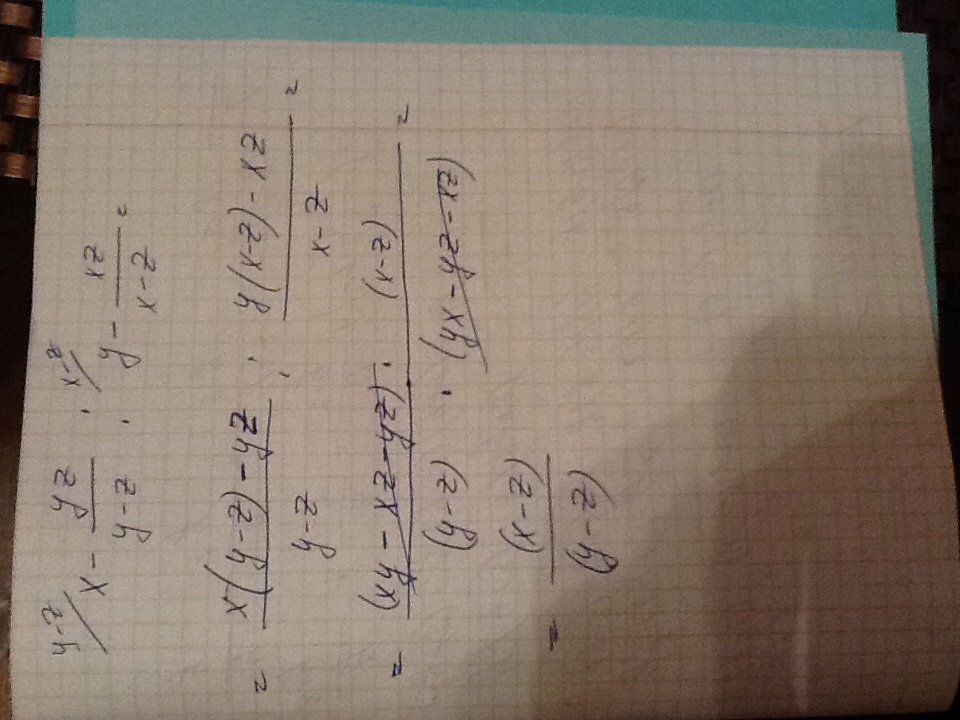 y-z/ x - yz/(y-z) : x-z/ y - xz/(x-z) =
= (x(y-z)-yz)/(y-z) : (y(x-z)-xz)/(x-z) =
= ((xy-xz-yz)·(x-z))/((y-z)·(yx-yz-xz)) =
= (x-z)/(y-z)